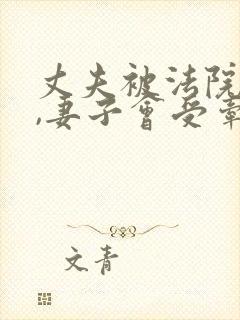 丈夫被法院
,妻子会受牵
文青